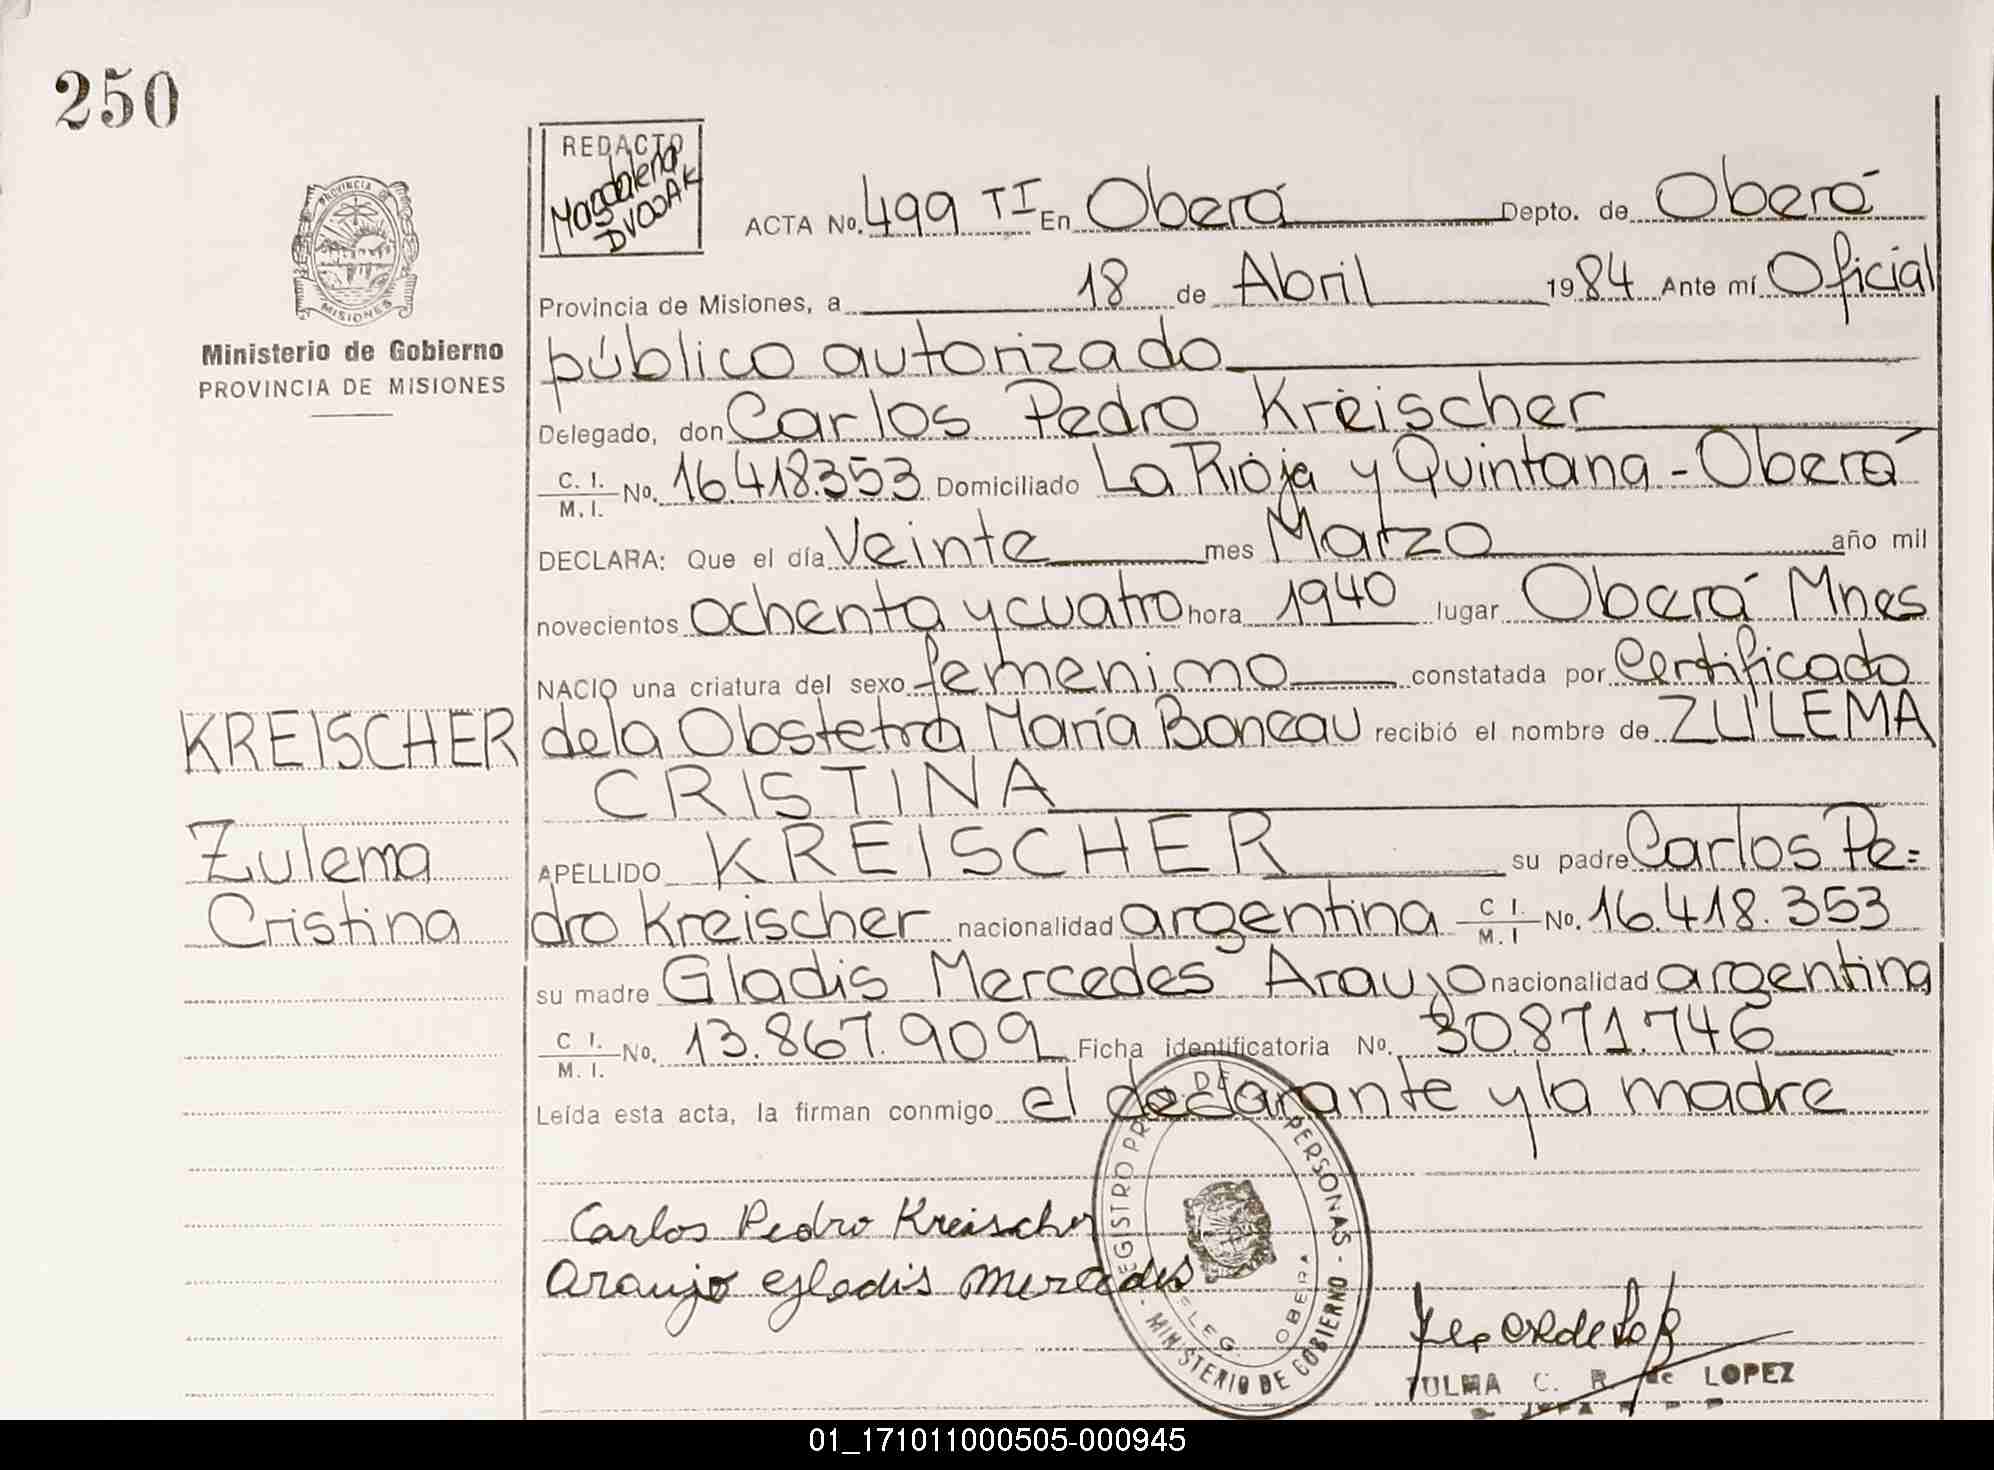 250
REDACTO
Magdalena
DVOJAK
PROVINCIA DE
MISIONES
Ministerio de Gobierno
PROVINCIA DE MISIONES
ACTA No. 499 TI En Oberá Depto. de Oberá
Provincia de Misiones, a 18 de Abril 1984 Ante mí Oficial
público autorizado
Delegado, don Carlos Pedro Kreischer
C. I. / M. I. No. 16.418.353 Domiciliado La Rioja y Quintana - Oberá
DECLARA: Que el día Veinte mes Marzo año mil
novecientos ochenta y cuatro hora 1940 lugar Oberá Mnes
NACIO una criatura del sexo femenino constatada por Certificado
de la Obstetra María Boneau recibió el nombre de ZULEMA
CRISTINA
APELLIDO KREISCHER su padre Carlos Pe=
dro Kreischer nacionalidad argentina C I. / M. I No. 16.418.353
su madre Gladis Mercedes Araujo nacionalidad argentina
C I. / M. I. No. 13.867.909 Ficha identificatoria No. 30.871.746
Leída esta acta, la firman conmigo el declarante y la madre
KREISCHER
Zulema
Cristina
Carlos Pedro Kreischer
Araujo Gladis Mercedes
REGISTRO DE PERSONAS
MINISTERIO DE GOBIERNO
DELEG. OBERA
C. R. de LOPEZ
01_171011000505-000945